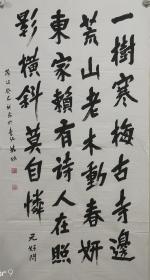 一樹寒梅古寺邊
荒山老木動春妍
東家賴有詩人在照
影橫斜莫自憐
元好問